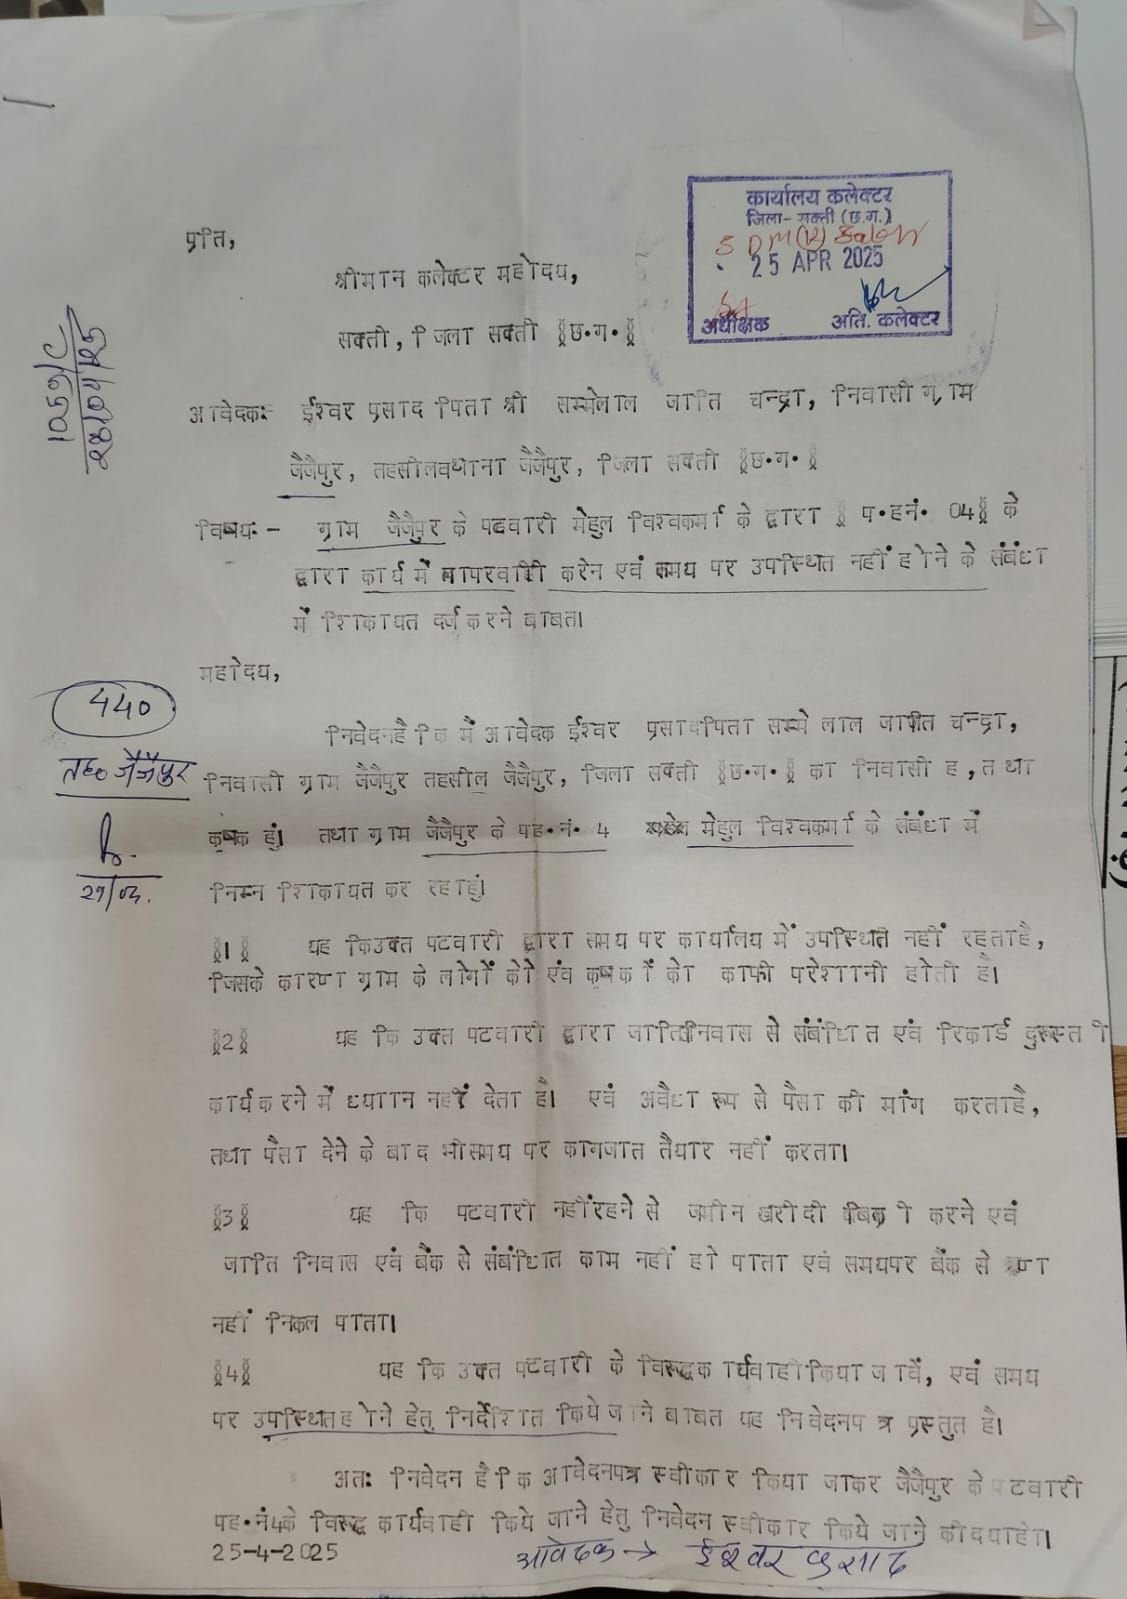 कार्यालय कलेक्टर
जिला- सक्ती (छ.ग.)
SDM(R) Sakti
25 APR 2025
अधीक्षक अति. कलेक्टर
प्रति,
श्रीमान कलेक्टर महोदय,
सक्ती, जिला सक्ती §छ.ग.§
1057/C
28/04/25
आवेदकः- ईश्वर प्रसाद पिता श्री सम्मेलाल जाति चन्द्रा, निवासी ग्राम
जैजैपुर, तहसीलवथाना जैजैपुर, जिला सक्ती §छ.ग.§
विषयः- ग्राम जैजैपुर के पटवारी मेहुल विश्वकर्मा के द्वारा § प.हनं. 04§ के
द्वारा कार्य में लापरवाही करेन एवं समय पर उपस्थित नहीं होने के संबंध
में शिकायत दर्ज करने बाबत।
महोदय,
440
तह० जैजैपुर
29/04.
निवेदनहै कि में आवेदक ईश्वर प्रसादपिता सम्मे लाल जाति चन्द्रा,
निवासी ग्राम जैजैपुर तहसील जैजैपुर, जिला सक्ती §छ.ग.§ का निवासी ह, तथा
कृषक हुं। तथा ग्राम जैजैपुर के पह.नं. 4 मेहुल विश्वकर्मा के संबंध में
निम्न शिकायत कर रहाहुं।
§1§ यह किउक्त पटवारी द्वारा समय पर कार्यालय में उपस्थित नहीं रहताहै,
जिसके कारण ग्राम के लोगों को एंव कृषकों को काफी परेशानी होती है।
§2§ यह कि उक्त पटवारी द्वारा जातिनिवास से संबंधित एवं रिकार्ड दुरूस्ती
कार्य करने में ध्यान नहीं देता है। एवं अवैध रूप से पैसा की मांग करताहै,
तथा पैसा देने के बाद भीसमय पर कागजात तैयार नहीं करता।
§3§ यह कि पटवारी नहींरहने से जमीन खरीदी बिक्री करने एवं
जाति निवास एवं बैंक से संबंधित काम नहीं हो पाता एवं समयपर बैंक से ऋण
नहीं निकल पाता।
§4§ यह कि उक्त पटवारी के विरूद्धक ार्यवाहीकिया जावें, एवं समय
पर उपस्थितहोने हेतु निर्देशित किये जाने बाबत यह निवेदनपत्र प्रस्तुत है।
अतः निवेदन है कि आवेदनपत्र स्वीकार किया जाकर जैजैपुर के पटवारी
पह.नं4के विरूद्ध कार्यवाही किये जाने हेतु निवेदन स्वीकार किये जाने कीदयाहो।
25-4-2025
आवेदक → ईश्वर प्रसाद